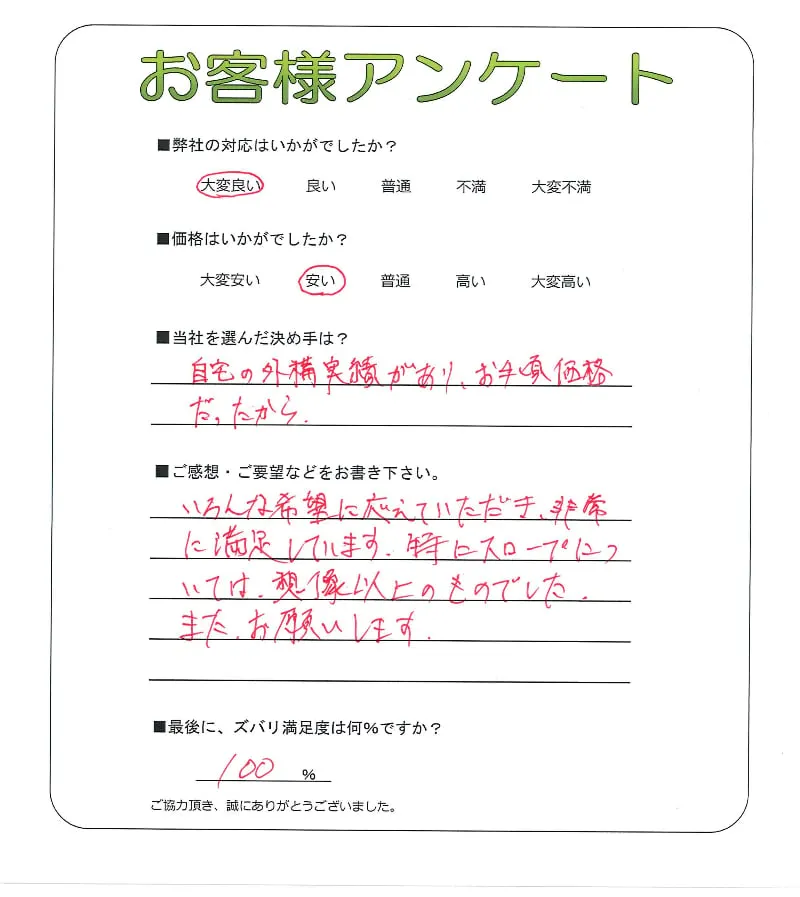 お客様アンケート
■弊社の対応はいかがでしたか？
大変良い 良い 普通 不満 大変不満
■価格はいかがでしたか？
大変安い 安い 普通 高い 大変高い
■当社を選んだ決め手は？
自宅の外構実績があり、お手頃価格
だったから.
■ご感想・ご要望などをお書き下さい。
いろんな希望に応えていただき、非常
に満足しています. 特にスロープにつ
いては、想像以上のものでした.
また、お願いします.
■最後に、ズバリ満足度は何%ですか？
100 %
ご協力頂き、誠にありがとうございました。